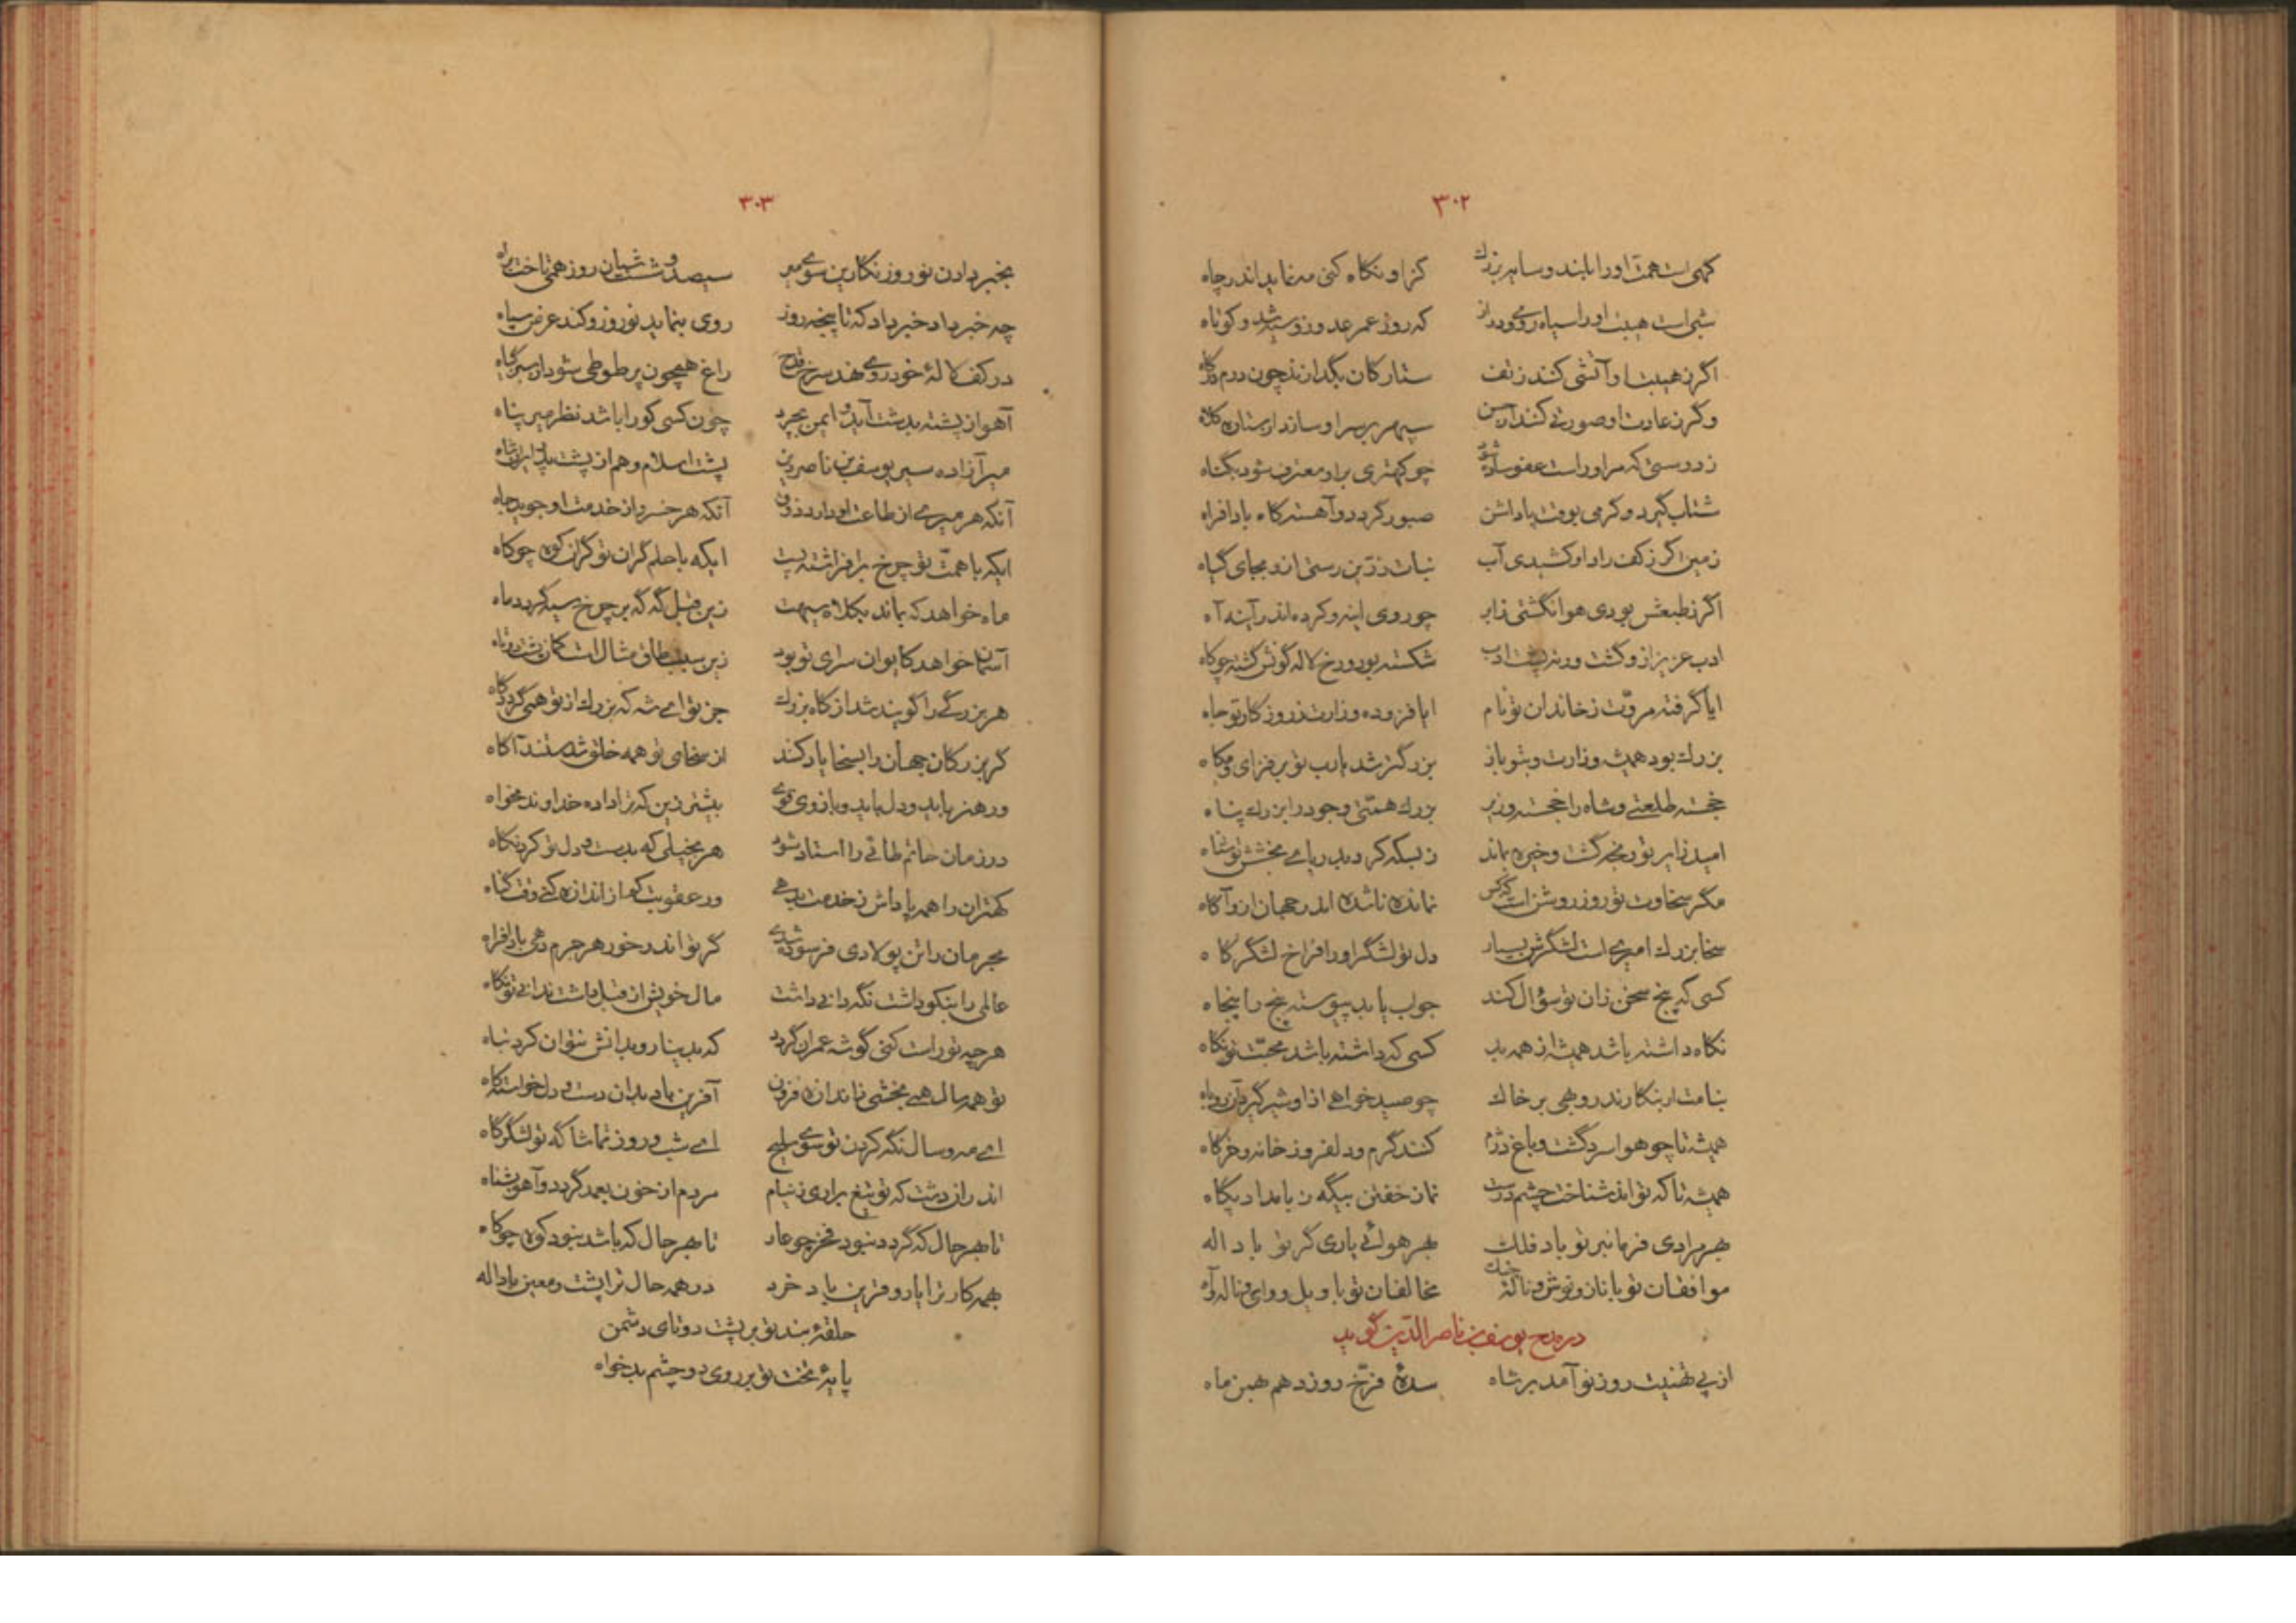 ۳۰۲
کهی است همت او را بلند و سایه بزرک کز او نکاه کنی مه نماید اندر چاه
شبی است هیبت او را سیاه روی و دراز که روز عمر عدو زو سیه شد و کوتاه
اگر ز هیبت او آتشی کنند ز تف ستارکان بگدازند چون درم در کاه
وگر ز عادت او صورتی کنند از حسن سپهر بر سر او سازد از ستاره کلاه
ز دوستی که مر او راست عفو ساده شود چو کهتری بر او معترف شود بگناه
شتاب گیرد و گرمی بوقت پاداشن صبور گردد و آهسته کاه بادافراه
زمین اگر ز کف راد او کشیدی آب نبات زرین رستی اندر بجای گیاه
اگر ز طبعش بودی هوا نگشتی ز ابر چو روی اینه و کرده اندر آینه آه
ادب عزیز ازو گشت ورنه پشت ادب شکسته بود و رخ لاله گونش گشته چو کاه
ایا گرفته مروّت ز خاندان تو نام ایا فزوده وزارت ز روزکار تو جاه
بزرک بود همیشه وزارت و بتو باز بزرگتر شد یارب تو برفزای و مکاه
خجسته طلعتی و شاه را خجسته وزیر بزرک همتی و جود را بزرک پناه
امید زایر تو رنجه گشت و خیره بماند ز بسکه کرد بدریای بخشش تو شناه
مگر سخاوت تو روز روشن است که کس نمانده ناشده اندر جهان ازو آکاه
سخا بزرک امیری است لشگرش بسیار دل تو لشگر او را فراخ لشگرکاه
کسی که پنج سخن زان تو سؤال کند جواب یابد پیوسته پنج را پنجاه
نکاه داشته باشد همیشه از همه بد کسی که داشته باشد محبّت تو نکاه
بنامت ار بنکارند روبهی بر خاک چو صید خواهی ازو شیر گیرد آن روباه
همیشه تا چو هوا سرد گشت و باغ دژم کنند گرم و دلفروز خانه و خرکاه
همیشه تا که تواند شناخت چشم درست نماز خفتن بیگه ز بامداد پکاه
بهر مرادی فرمانبر تو باد فلک بهر هوائی یاری گر تو باد اله
موافقان تو با ناز و نوش و ناله چنک مخالفان تو با ویل و وای و ناله و آه
در مدح یوسف بن ناصر الدین گوید
از پی تهنیت روز نو آمد بر شاه سدهٔ فرّخ روز دهم بهمن ماه
۳۰۳
بخبر دادن نوروز نکارین سوی میر سیصد و شصت شبان روز همی تاخت براه
چه خبر داد خبر داد که تا پنجه روز روی بنماید نوروز و کند عرض سپاه
در کف لالهٔ خودروی نهد سرخ قدح راغ همچون پر طوطی شود از سبز گیاه
آهو از پشته بدشت آید و ایمن بچرد چون کسی کو را باشد نظر میر پناه
میر آزاده سیر یوسف بن ناصر دین پشت اسلام و هم از پشت پدر ایران شاه
آنکه هر میری از طاعت او دارد فزون آنکه هر خسرو از خدمت او جوید جاه
ایکه با همّت تو چرخ برافراشته پست ایکه با حلم گران تو گران کوه چو کاه
ماه خواهد که بماند بکلاه سیهت زین قبل گه گه بر چرخ سیه گردد ماه
آسمان خواهد کایوان سرای تو بود زین سبب طاق مثال است کمان پشت دوتاه
هر بزرگی را گویند شد از کاه بزرک جز تو ای شه که بزرک از تو همی گردد کاه
گر بزرکان جهان را بسخا یاد کنند از سخای تو همه خلق شدستند آکاه
ور هنر باید و دل باید و بازوی قوی بیشتر زین که ترا داده خداوند مخواه
در زمان حاتم طائی را استاد شود هر بخیلی که بدست و دل تو کرد نکاه
کهتران را همه پاداش ز خدمت بدهی ور عقوبت کم از اندازه کنی وقت گناه
مجرمان را تن پولادی فرسوده شدی گر تو اندر خور هر جرم دهی بادافراه
عالمی را بنکو داشت نگه دانی داشت مال خویش از قبل داشت ندانی تو نکاه
هر چه تو راست کنی گوشه عمران گردد که بدینار و بدانش نتوان کرد تباه
تو همه سال همی بخشی ز اندازه فزون آفرین باد بدان دست و دل خواسته کاه
ای مه و سال نگه کردن تو سوی سلیح ای شب و روز تماشاگه تو لشگرکاه
اندر ان دشت که تو تیغ براری ز نیام مردم از خون بعمد گردد و آهو بشناه
تا بهر حال که گردد نبود فخر چو عار تا بهر حال که باشد نبود کوه چو کاه
بهمه کار ترا یار و قرین باد خرد در همه حال ترا پشت و معین باد اله
حلقهٔ بند تو بر پشت دوتای دشمن
پایهٔ تخت تو بر روی دو چشم بدخواه